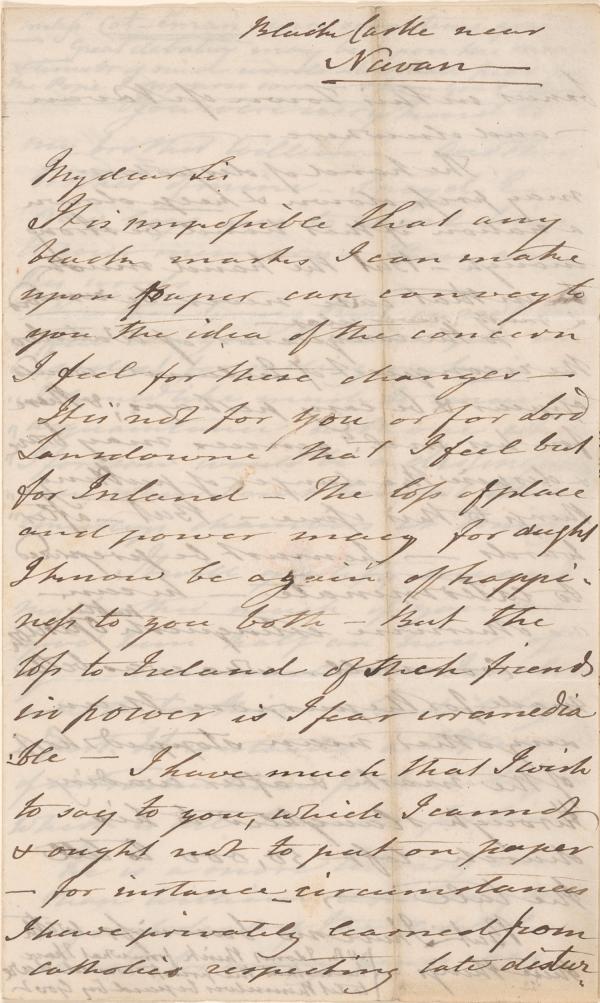 Black Castle near
Navan
My dear Sir
It is impossible that any
black marks I can make
upon paper can convey to
you the idea of the concern
I feel for these changes —
It is not for you or for Lord
Lansdowne that I feel but
for Ireland — The loss of place
and power may for aught
I know be a gain of happi-
ness to you both — But the
loss to Ireland of such friends
in power is I fear irremedia
:ble — I have much that I wish
to say to you, which I cannot
& ought not to put on paper
— for instance circumstances
I have privately learned from
catholics respecting late distur-